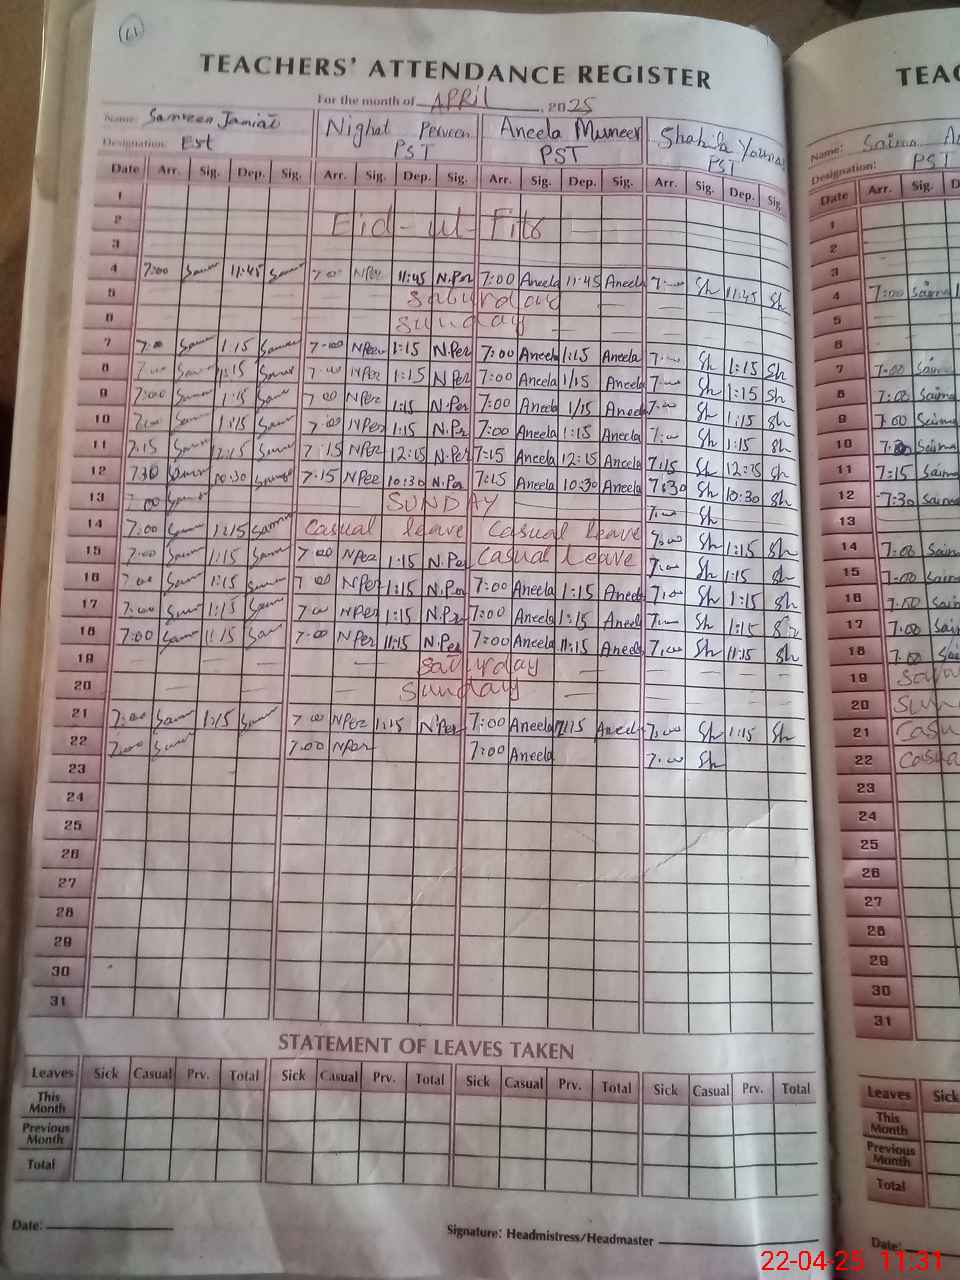 11
TEACHERS' ATTENDANCE REGISTER
TEAC
For the month of APRIL, 2025
Name: Nighat Perveen Aneela Muneer Shahila
Designation: Est PST PST PST
Name: Saima
Designation: PST
Date Arr. Sig. Dep. Sig. Arr. Sig. Dep. Sig. Arr. Sig. Dep. Sig. Arr. Sig. Dep. Sig. Date Arr. Sig. D
1 1
2 Eid-ul-Fitr 2
3 3
4 7:00 11:45 7:00 N.Per 11:45 N.Per 7:00 Aneela 11:45 Aneela 7:00 Sh 11:45 Sh 4 7:00 Saima
5 Saturday 5
6 Sunday 6
7 7:00 1:15 7:00 NPer 1:15 N.Per 7:00 Aneela 1:15 Aneela 7:00 Sh 1:15 Sh 7 7:00
8 7:00 1:15 7:00 NPer 1:15 N.Per 7:00 Aneela 1:15 Aneela 7:00 Sh 1:15 Sh 8 7:00 Saima
9 7:00 1:15 7:00 NPer 1:15 N.Per 7:00 Aneela 1/15 Aneela 7:00 Sh 1:15 Sh 9 7:00 Saima
10 7:00 1:15 7:00 NPer 1:15 N.Per 7:00 Aneela 1:15 Aneela 7:00 Sh 1:15 Sh 10 Saima
11 7:15 12:15 7:15 NPer 12:15 N.Per 7:15 Aneela 12:15 Aneela 7:15 Sh 12:15 Sh 11 7:15 Saima
12 7:30 10:30 7:15 NPer 10:30 N.Per 7:15 Aneela 10:30 Aneela 7:30 Sh 10:30 Sh 12 7:30 Saima
13 7:00 SUNDAY 7:00 Sh 13
14 7:00 1:15 Casual leave Casual leave 7:00 Sh 1:15 Sh 14 7:00
15 7:00 1:15 7:00 NPer 1:15 N.Per Casual Leave 7:00 Sh 1:15 Sh 15 7:00
16 7:00 1:15 7:00 NPer 1:15 N.Per 7:00 Aneela 1:15 Aneela 7:00 Sh 1:15 Sh 16 7:00
17 7:00 1:15 7:00 NPer 1:15 N.Per 7:00 Aneela 1:15 Aneela 7:00 Sh 1:15 Sh 17 7:00
18 7:00 11:15 7:00 NPer 11:15 N.Per 7:00 Aneela 11:15 Aneela 7:00 Sh 11:15 Sh 18 7:00
19 Saturday 19
20 Sunday 20
21 7:00 1:15 7:00 NPer 1:15 N.Per 7:00 Aneela Aneela 7:00 Sh 1:15 Sh 21
22 7:00 7:00 NPer 7:00 Aneela 7:00 Sh 22
23 23
24 24
25 25
26 26
27 27
28 28
29 29
30 30
31 31
STATEMENT OF LEAVES TAKEN
Leaves Sick Casual Prv. Total Sick Casual Prv. Total Sick Casual Prv. Total Sick Casual Prv. Total Leaves Sick
This Month This Month
Previous Month Previous Month
Total Total
Date:
Signature: Headmistress/Headmaster
Date:
22-04-25 11:31